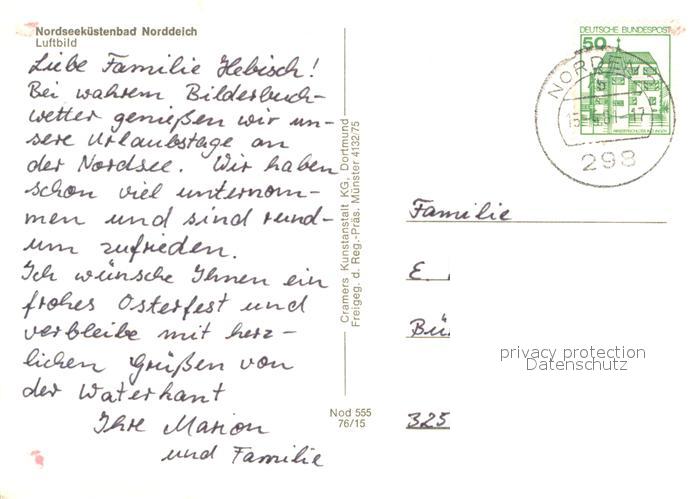 Nordseeküstenbad Norddeich
Luftbild
Liebe Familie Hebisch!
Bei wahrem Bilderbuch-
wetter genießen wir un-
sere Urlaubstage an
der Nordsee. Wir haben
schon viel unternom-
men und sind rund-
um zufrieden.
Ich wünsche Ihnen ein
frohes Osterfest und
verbleibe mit herz-
lichen Grüßen von
der Waterkant
Ihre Marion
und Familie
Cramers Kunstanstalt KG, Dortmund
Freigeg. d. Reg.-Präs. Münster 4132/75
Nod 555
76/15
DEUTSCHE BUNDESPOST
50
NORDEN
298
Familie
E
Bü
325
privacy protection
Datenschutz